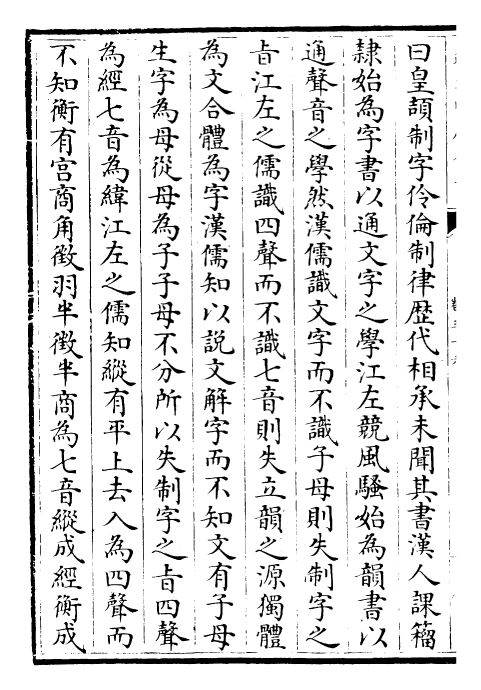 曰皇頡制字伶倫制律歴代相承未聞其書漢人課籀
隷始為字書以通文字之學江左競風騷始為韻書以
通聲音之學然漢儒識文字而不識子母則失制字之
㫖江左之儒識四聲而不識七音則失立韻之源獨體
為文合體為字漢儒知以説文解字而不知文有子母
生字為母從母為子子母不分所以失制字之㫖四聲
為經七音為緯江左之儒知縱有平上去入為四聲而
不知衡有宫商角徴羽半徴半商為七音縱成經衡成